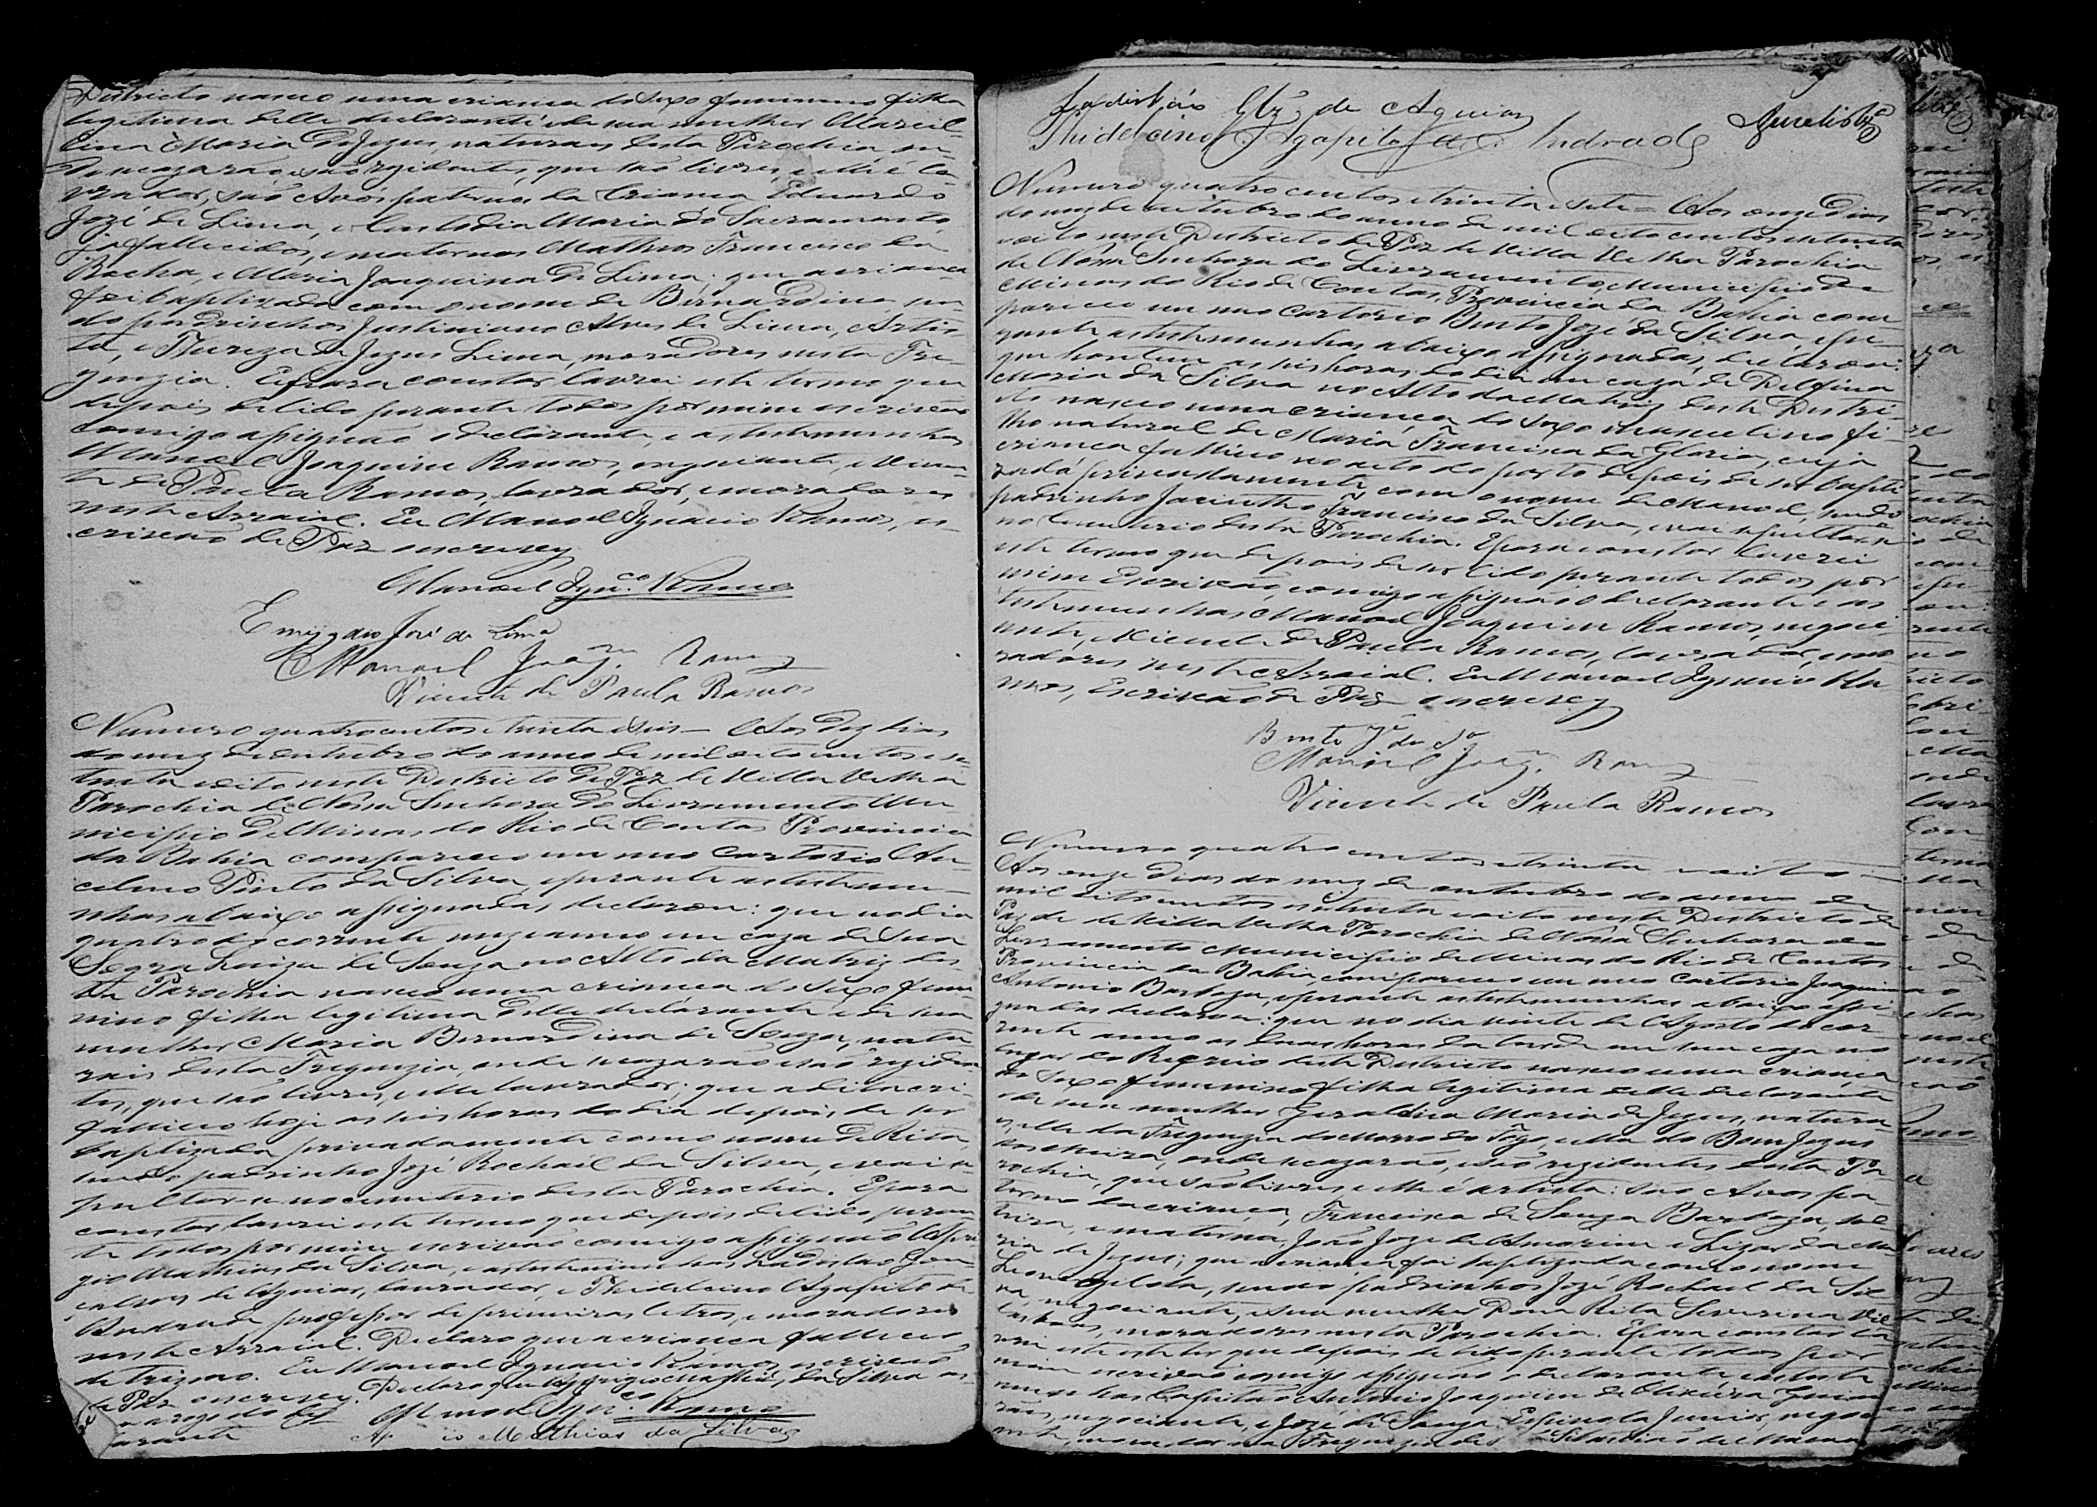 Districto nasceo uma criança do sexo feminino filha
legitima delle declarante e de sua mulher Marcel-
lina Maria de Jezus, naturaes desta Parochia on-
de se cazarão e são rezidentes, que são livres, e elle é la-
vrador, são Avós paternos da Criança Eduardo
José de Lima, e Custodia Maria do Sacramento,
já fallecidos, e maternos Matheos Francisco da
Rocha, e Maria Joaquina de Lima; que a criança
foi baptizada com o nome de Bernardina, sen-
do padrinhos Justiniano Alves de Lima, Artis-
ta, e Thereza de Jezus Lima, moradores nesta Fre-
guezia. E para constar lavrei este termo que
depois de lido perante todos por mim escrivão
comigo assignão o declarante, e as testemunhas
Manoel Joaquim Ramos, negociante, e Vicen-
te de Paula Ramos, lavrador, moradores
neste Arraial. Eu Manoel Ignacio Ramos, es-
crivão de Paz o escrevy
Manoel Ignº. Ramos
Emygdio José de Lima
Manoel Joaqm. Ramos
Vicente de Paula Ramos
Numero quatrocentos e trinta e seis — Aos dez dias
do mez de outubro do anno de mil oito centos e se-
tenta e oito neste Districto de Paz de Villa Velha
Parochia de Nossa Senhora do Livramento Mu-
nicipio de Minas do Rio de Contas Provincia
da Bahia compareceo em meo Cartorio An-
celmo Pinto da Silva, e perante as testemu-
nhas abaixo assignadas, declarou: que no dia
quatro do corrente mez e anno em caza de sua
Sogra Luiza de Souza no Alto da Matriz des-
ta Parochia nasceo uma criança do sexo femi-
nino filha legitima delle declarante e de sua
mulher Maria Bernardina de Souza, natu-
raes desta Freguezia, onde se cazarão e são reziden-
tes, que são livres, e elle lavrador; que a dita cri-
falleceo hoje as seis horas do dia depois de ser
baptizada privadamente com o nome de Rita,
sendo padrinho José Rochael da Silva, e vai se
pultar-se no cemiterio desta Parochia. E para
constar lavrei este termo que depois de lido peran
te todos por mim escrivão comigo assignão Aspri
gio Mathias da Silva, e as testemunhas Ladislao Gon
calves de Aguiar, lavrador, e Thidelcino Agapito de
Andrade professor de primeiras letras, e moradores
neste Arraial. Declaro que a criança falleceo
de trismo. Eu Manoel Ignacio Ramos escrivão
de Paz o escrevy. Declaro que Asprigio Mathias da Silva as
a rogo do de
clarante
Manoel Ignº. Ramos
Mathias da Silva
Ladisláo Glz' de Aguiar
Thidelcino Agapito de Andrade
Numero quatro centos e trinta e sete = Aos onze dias
do mez de outubro do anno de mil oito centos e setenta
e oito neste Districto de Paz de Villa Velha Parochia
de Nossa Senhora do Livramento Municipio de
Minas do Rio de Contas, Provincia da Bahia com-
pareceo em meo Cartorio Bento José da Silva, e pe-
rante as testemunhas abaixo assignadas, declarou:
que hontem as seis horas do dia em caza de Delfina
Maria da Silva no Alto da Matriz deste Distri-
cto nasceo uma criança do sexo masculino fi-
lho natural de Maria Francisca da Gloria, cuja
criança falleceo no acto do parto depois de ser bapti-
zado privadamente com o nome de Manoel, sendo
padrinho Jacintho Francisco da Silva, e vai sepultar-se
no Cemiterio desta Parochia. E para constar lavrei
este termo que depois de ser lido perante todos por
mim Escrivão, comigo assignão o declarante e as
testemunhas Manoel Joaquim Ramos, negoci-
ante, e Vicente de Paula Ramos, lavrador, e mo
radores neste Arraial. Eu Manoel Ignacio Ra
mos, Escrivão de Paz o escrevy
Bento Jé da Sª
Manoel Joaqm. Ramos
Vicente de Paula Ramos
Numero quatro centos e trinta e oito —
Aos onze dias do mez de outubro do anno de
mil oito centos e setenta e oito neste Districto de
Paz de Villa Velha Parochia de Nossa Senhora do
Livramento Municipio de Minas do Rio de Contas
Provincia da Bahia, compareceo em meo Cartorio Joaquim
Antonio Barboza, e perante as testemunhas abaixo assi-
gnadas declarou: que no dia vinte de Agosto do cor-
rente anno as duas horas da tarde em sua caza no
lugar do deste Districto nasceo uma criança
do sexo feminino filha legitima delle declarante
e de sua mulher Geraldina Maria de Jezus, natura-
es, elle da Freguezia do Morro do Fogo, e ella do Bom Jezus
dos Meira, onde se cazarão, e são rezidentes desta Pa-
rochia, que são livres e elle é artista: são Avos pa-
terno da criança, Francisca de Souza Barboza, sol-
teira, e materna, João José de Amorim e Lizarda Ma
ria de Jezus; que a criança foi baptizada com o nome
Leonegilda, sendo padrinhos José Rochael da Sil
va, negociante, e sua mulher Dona Rita Severina Vil
las boas, moradores nesta Parochia. E para constar la
vrei este termo que depois de lido perante todos por
mim escrivão comigo assignão o declarante e as teste
munhas Capitão Antonio Joaquim de Oliveira Guima
rães, negociante, e José de Souza Espinola Junior, negoci
ante, morador na Freguezia de